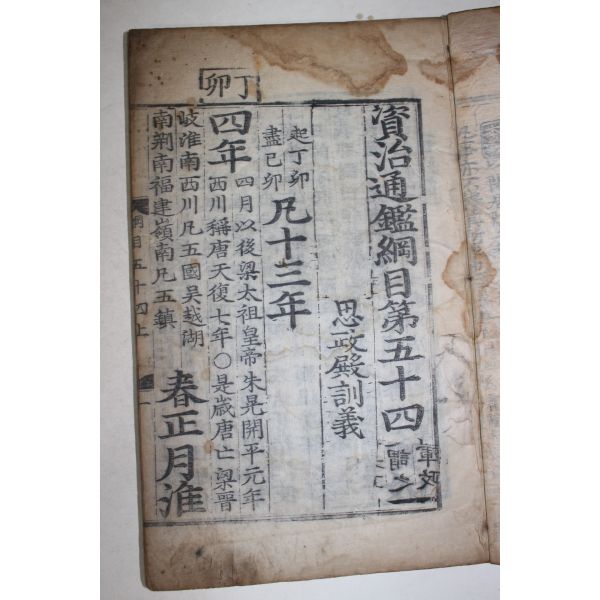 資治通鑑綱目第五十四
思政殿訓義
起丁卯
盡己卯
凡十三年
丁卯
四年
四月以後梁太祖皇帝朱晃開平元年
西川稱唐天復七年〇是歲唐亡梁晉
岐淮南西川凡五國吳越湖
南荆南福建嶺南凡五鎮
春正月淮
綱目五十四上